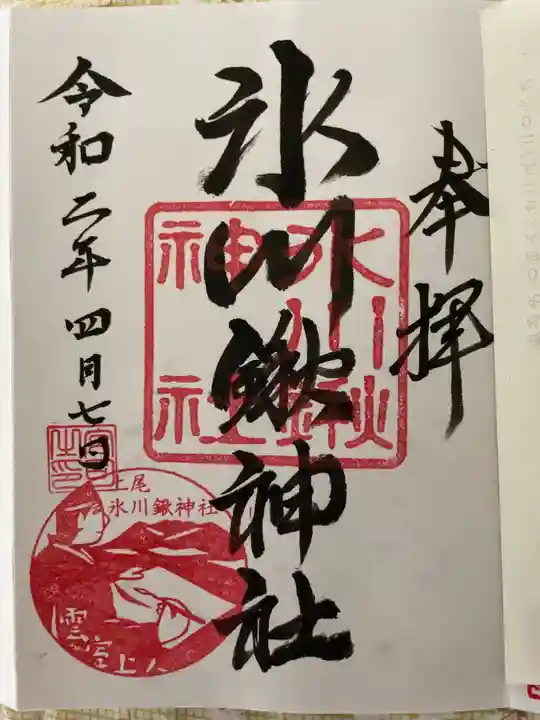 奉拝
氷川鍬神社
令和二年四月七日
上尾
氷川鍬神社
雲室上人